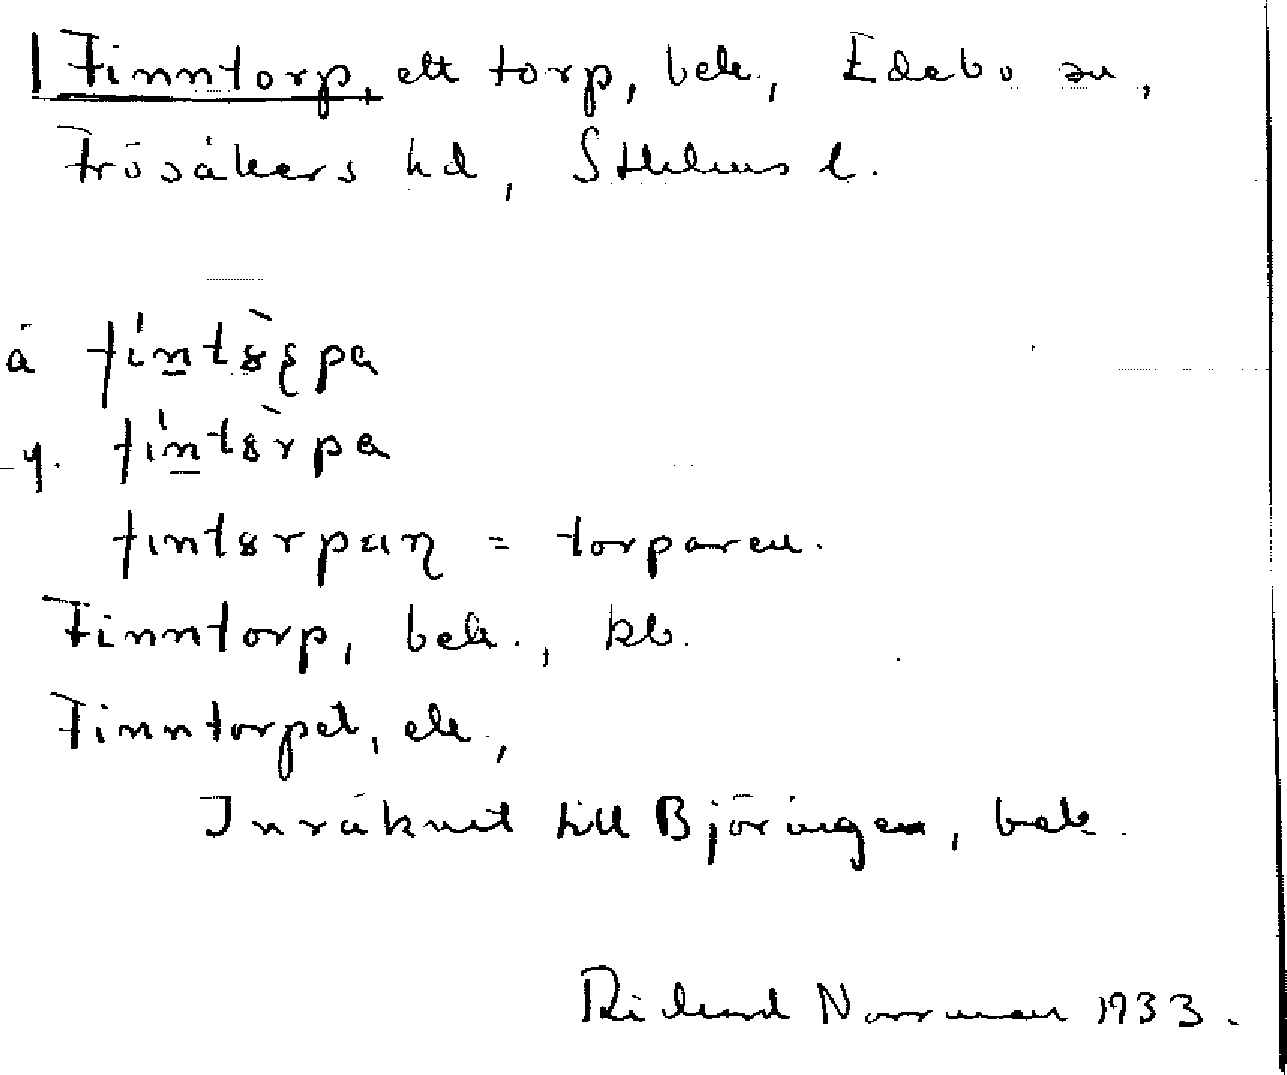 Finntorp, ett torp, bek., Edebo sn,
Frösåkers hd, Sthlms l.
å fintȣrpa
y. fintȣrpa
fintȣrpaṇ = torparen.
Finntorp, bek., kb.
Finntorpet, ek.,
Inräknat till Björingen, bek.
Rickard Norrman 1933.